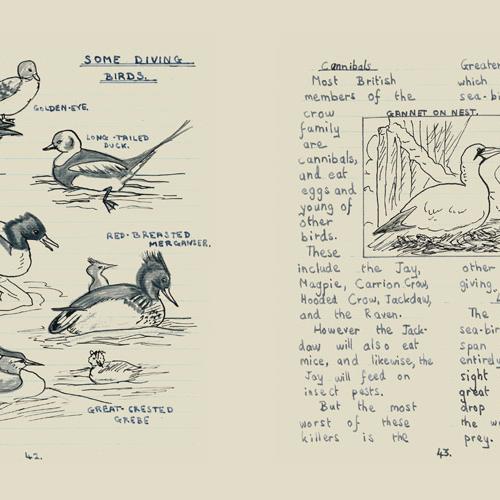 SOME DIVING
BIRDS.
GOLDEN-EYE.
LONG-TAILED
DUCK.
RED-BREASTED
MERGANSER.
GREAT-CRESTED
GREBE
42.
Cannibals
Most British
members of the
crow
family
are
cannibals,
and eat
eggs and
young of
other
birds.
These
include the Jay,
Magpie, Carrion Crow,
Hooded Crow, Jackdaw,
and the Raven.
However the Jack-
daw will also eat
mice, and likewise, the
Jay will feed on
insect pests.
But the most
worst of these
killers is the
GANNET ON NEST.
Greater
which
sea-bi
other
giving
The
sea-bir
span
entirely
sight
great
drop
the wa
prey.
43.